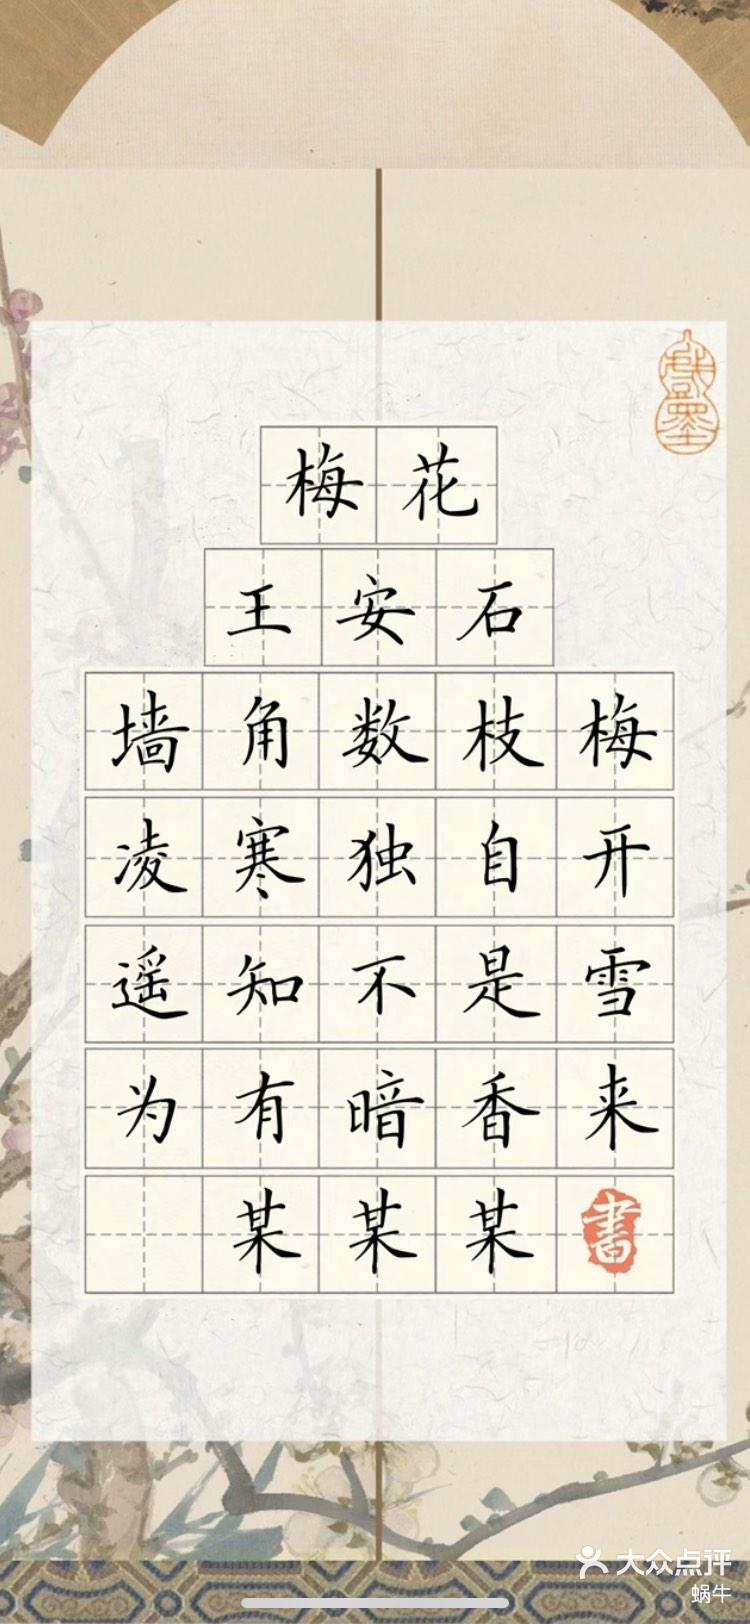 梅花
王安石
墙角数枝梅
凌寒独自开
遥知不是雪
为有暗香来
某某某書
大众点评
蜗牛